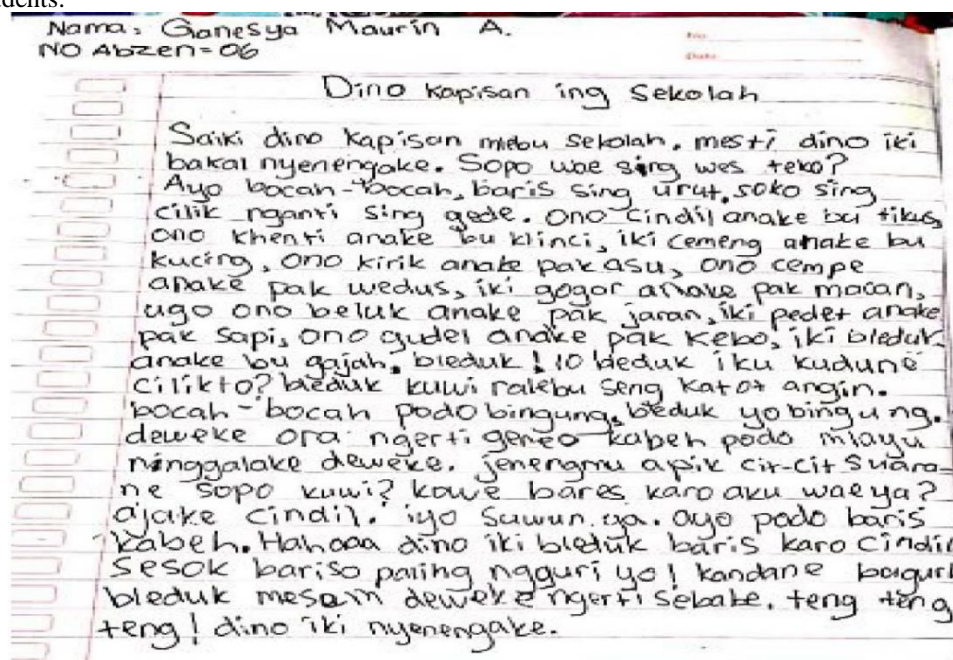 dents.
Nama: Ganesya Maurin A.
NO Abzen=06
No
Date
Dino kapisan ing sekolah
Saiki dino kapisan mlebu sekolah. mesti dino iki
bakal nyenengake. Sopo wae sing wes teko?
Ayo bocah-bocah, baris sing urut, soko sing
cilik nganti sing gede. ono cindil anake bu tikus,
ono khenti anake bu klinci, iki cemeng anake bu
kucing, ono kirik anake pak asu, ono cempe
anake pak wedus, iki gogor anake pak macan,
ugo ono beluk anake pak jaran, iki pedet anake
pak sapi, ono gudel anake pak kebo, iki bleduk
anake bu gajah. bleduk! lo bleduk iku kudune
cilik to? bleduk kuwi ralebu seng katot angin.
bocah-bocah podo bingung, bleduk yo bingung.
deweke ora ngerti geneo kabeh podo mlayu
ninggalake deweke. jenengmu apik cit-cit Suara-
ne sopo kuwi? kowe bares karo aku wae ya?
ajake cindil. iyo suwun ya. ayo podo baris
kabeh. Hahaaa dino iki bleduk baris karo cindil
Sesok bariso paling ngguri yo! kandane baguri
bleduk mesam deweke ngerti sebabe. teng teng
teng! dino iki nyenengake.